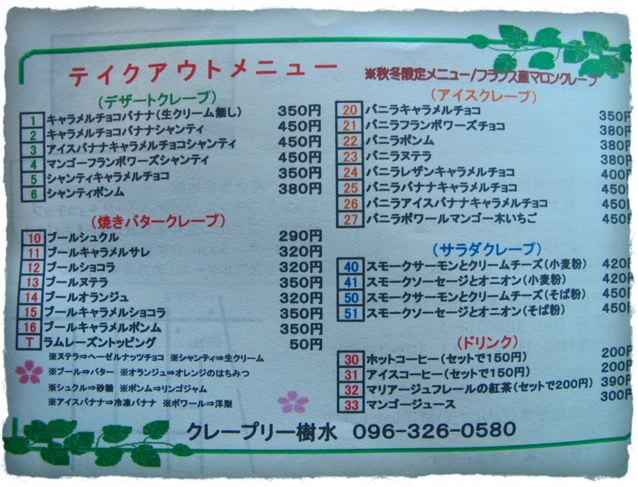 テイクアウトメニュー
※秋冬限定メニュー/フランス産マロンクレープ
(デザートクレープ)
1 キャラメルチョコバナナ(生クリーム無し) 350円
2 キャラメルチョコバナナシャンティ 450円
3 アイスバナナキャラメルチョコシャンティ 450円
4 マンゴーフランボワーズシャンティ 450円
5 シャンティキャラメルチョコ 350円
6 シャンティボンム 380円
(焼きバタークレープ)
10 ブールシュクル 290円
11 ブールキャラメルサレ 320円
12 ブールショコラ 320円
13 ブールヌテラ 350円
14 ブールオランジュ 320円
15 ブールキャラメルショコラ 350円
16 ブールキャラメルポンム 350円
T ラムレーズントッピング 50円
※ヌテラ⇒ヘーゼルナッツチョコ ※シャンティ⇒生クリーム
※ブール⇒バター ※オランジュ⇒オレンジのはちみつ
※シュクル⇒砂糖 ※ポンム⇒リンゴジャム
※アイスバナナ⇒冷凍バナナ ※ポワール⇒洋梨
(アイスクレープ)
20 バニラキャラメルチョコ 350円
21 バニラフランボワーズチョコ 380円
22 バニラポンム 380円
23 バニラヌテラ 380円
24 バニラレザンキャラメルチョコ 400円
25 バニラバナナキャラメルチョコ 450円
26 バニラアイスバナナキャラメルチョコ 450円
27 バニラポワールマンゴー木いちご 450円
(サラダクレープ)
40 スモークサーモンとクリームチーズ(小麦粉) 420円
41 スモークソーセージとオニオン(小麦粉) 420円
50 スモークサーモンとクリームチーズ(そば粉) 450円
51 スモークソーセージとオニオン(そば粉) 450円
(ドリンク)
30 ホットコーヒー(セットで150円) 200円
31 アイスコーヒー(セットで150円) 200円
32 マリアージュフレールの紅茶(セットで200円) 390円
33 マンゴージュース 300円
クレープリー樹水 096-326-0580